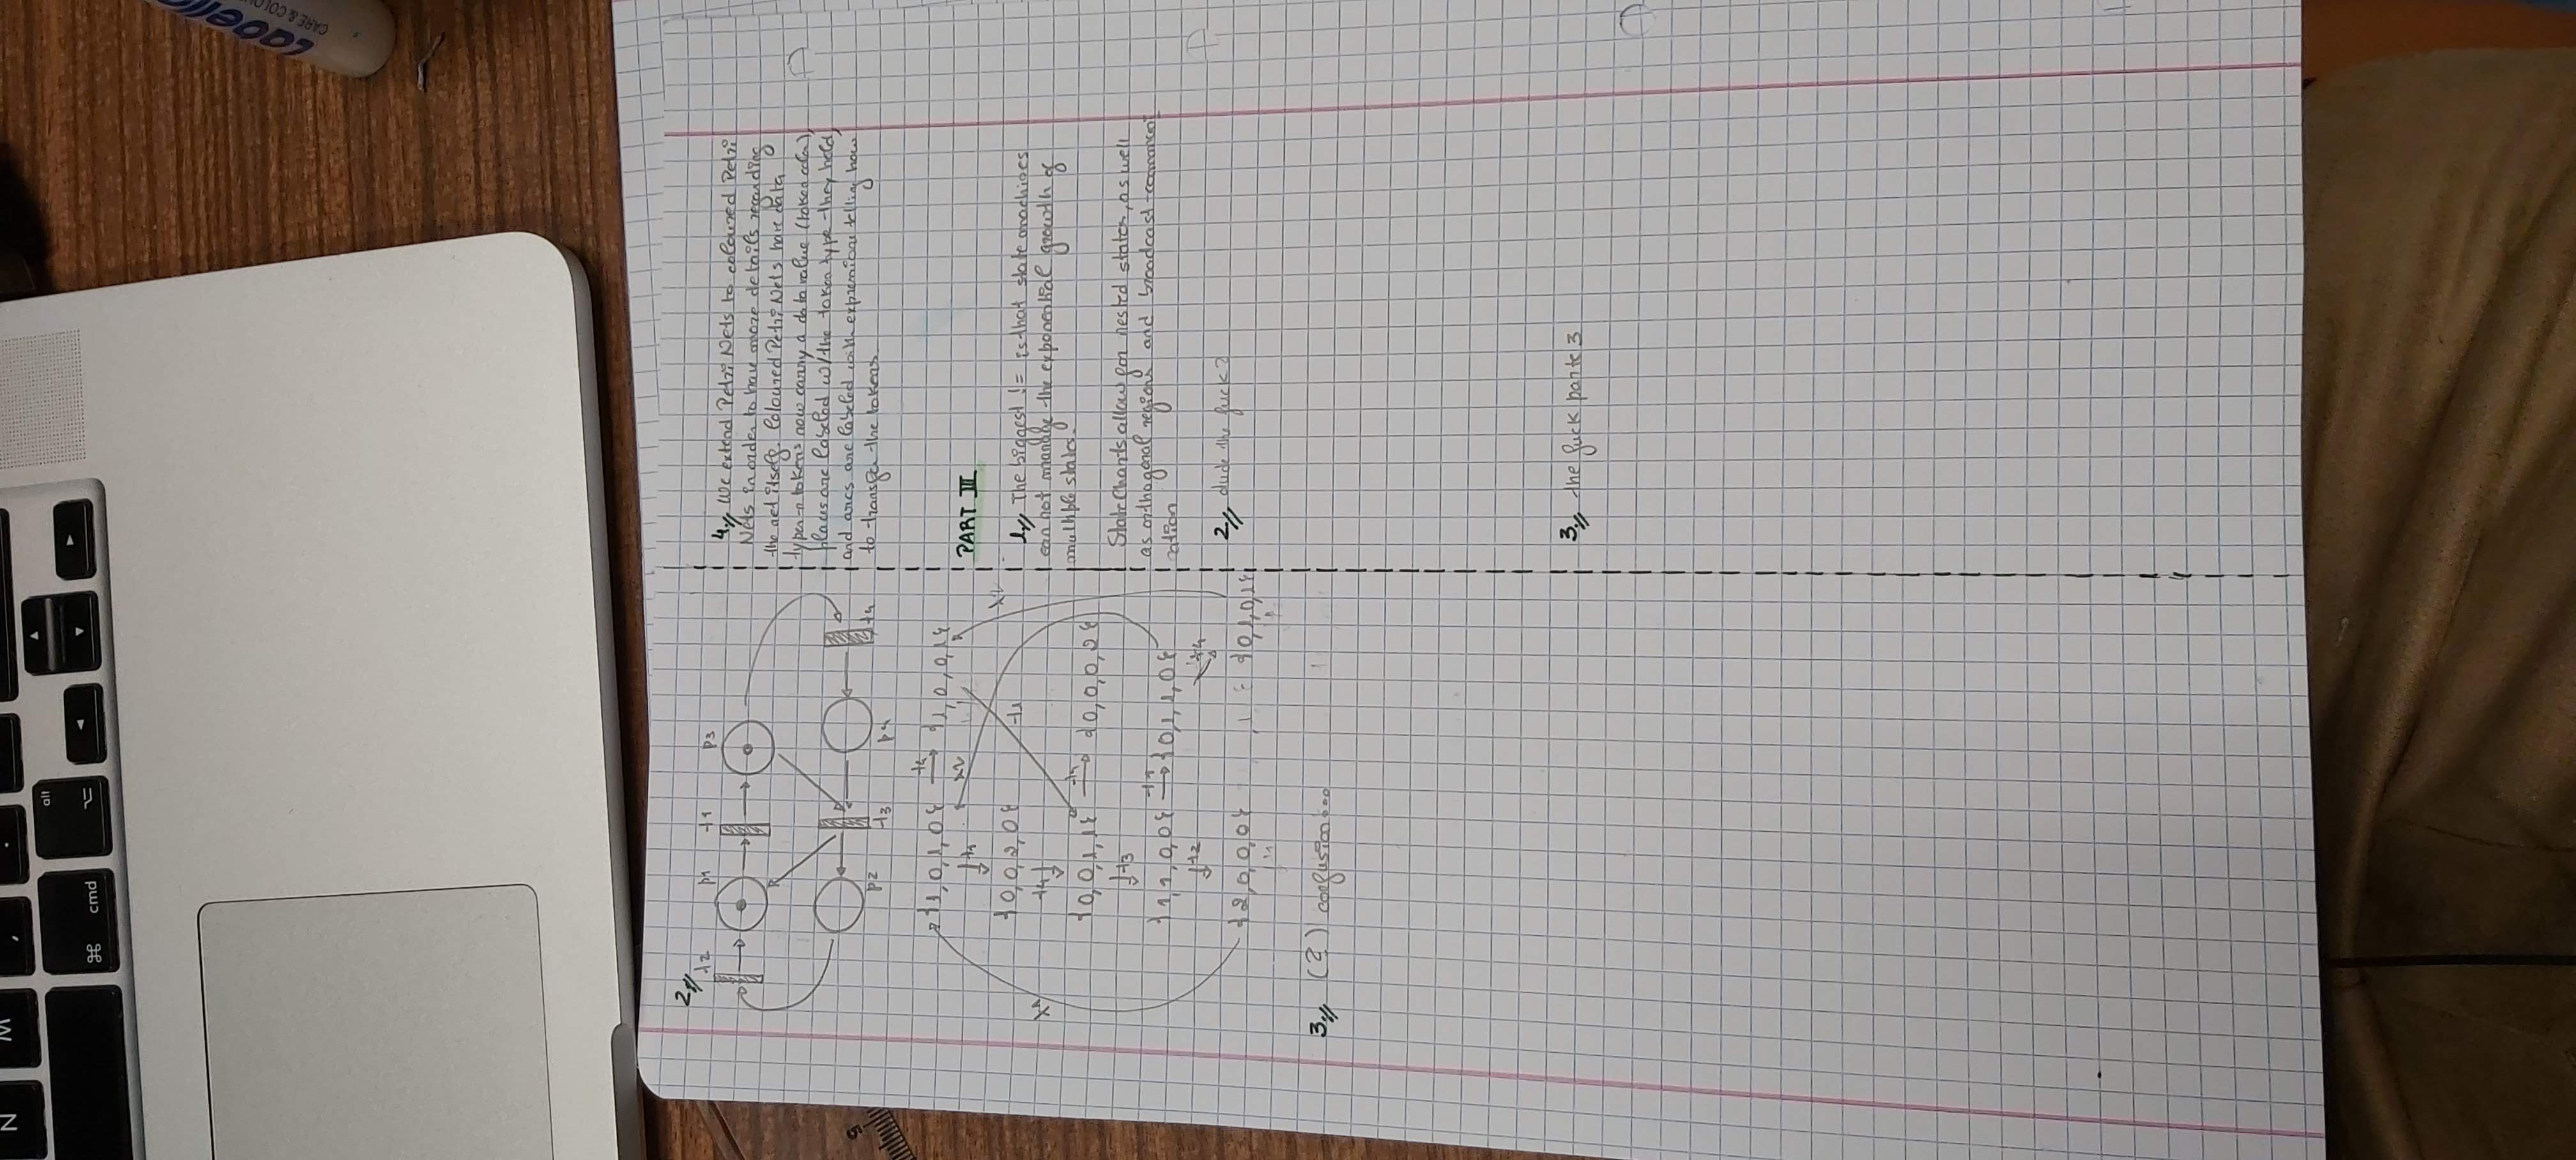 labello
CARE & COLOUR
N
M
⌘
cmd
alt
⌥
5
2//
t2
p1
t1
p3
p2
t3
p4
t4
{1,0,1,0} t4 → {1,0,0,1}
↓ t1
t2
t2
{0,0,2,0}
t4 ↓
t1
{0,0,1,1} t4 → {0,0,0,2}
↓ t3
{1,1,0,0} t1 → {0,1,1,0}
↓ t2
t4
{2,0,0,0}
{0,1,0,1}
3// (?) confusion:...
4// We extend Petri Nets to coloured Petri
Nets in order to have more details regarding
the net itself. Coloured Petri Nets have data
types → tokens now carry a data value (token color),
places are labeled w/ the token type they hold,
and arcs are labeled with expressions telling how
to transfer the tokens.
PART III
1// The biggest != is that state machines
can not manage the exponential growth of
multiple states.
StateCharts allow for nested states, as well
as orthogonal regions and broadcast communi
cation
2// dude the fuck?
3// the fuck parte 3